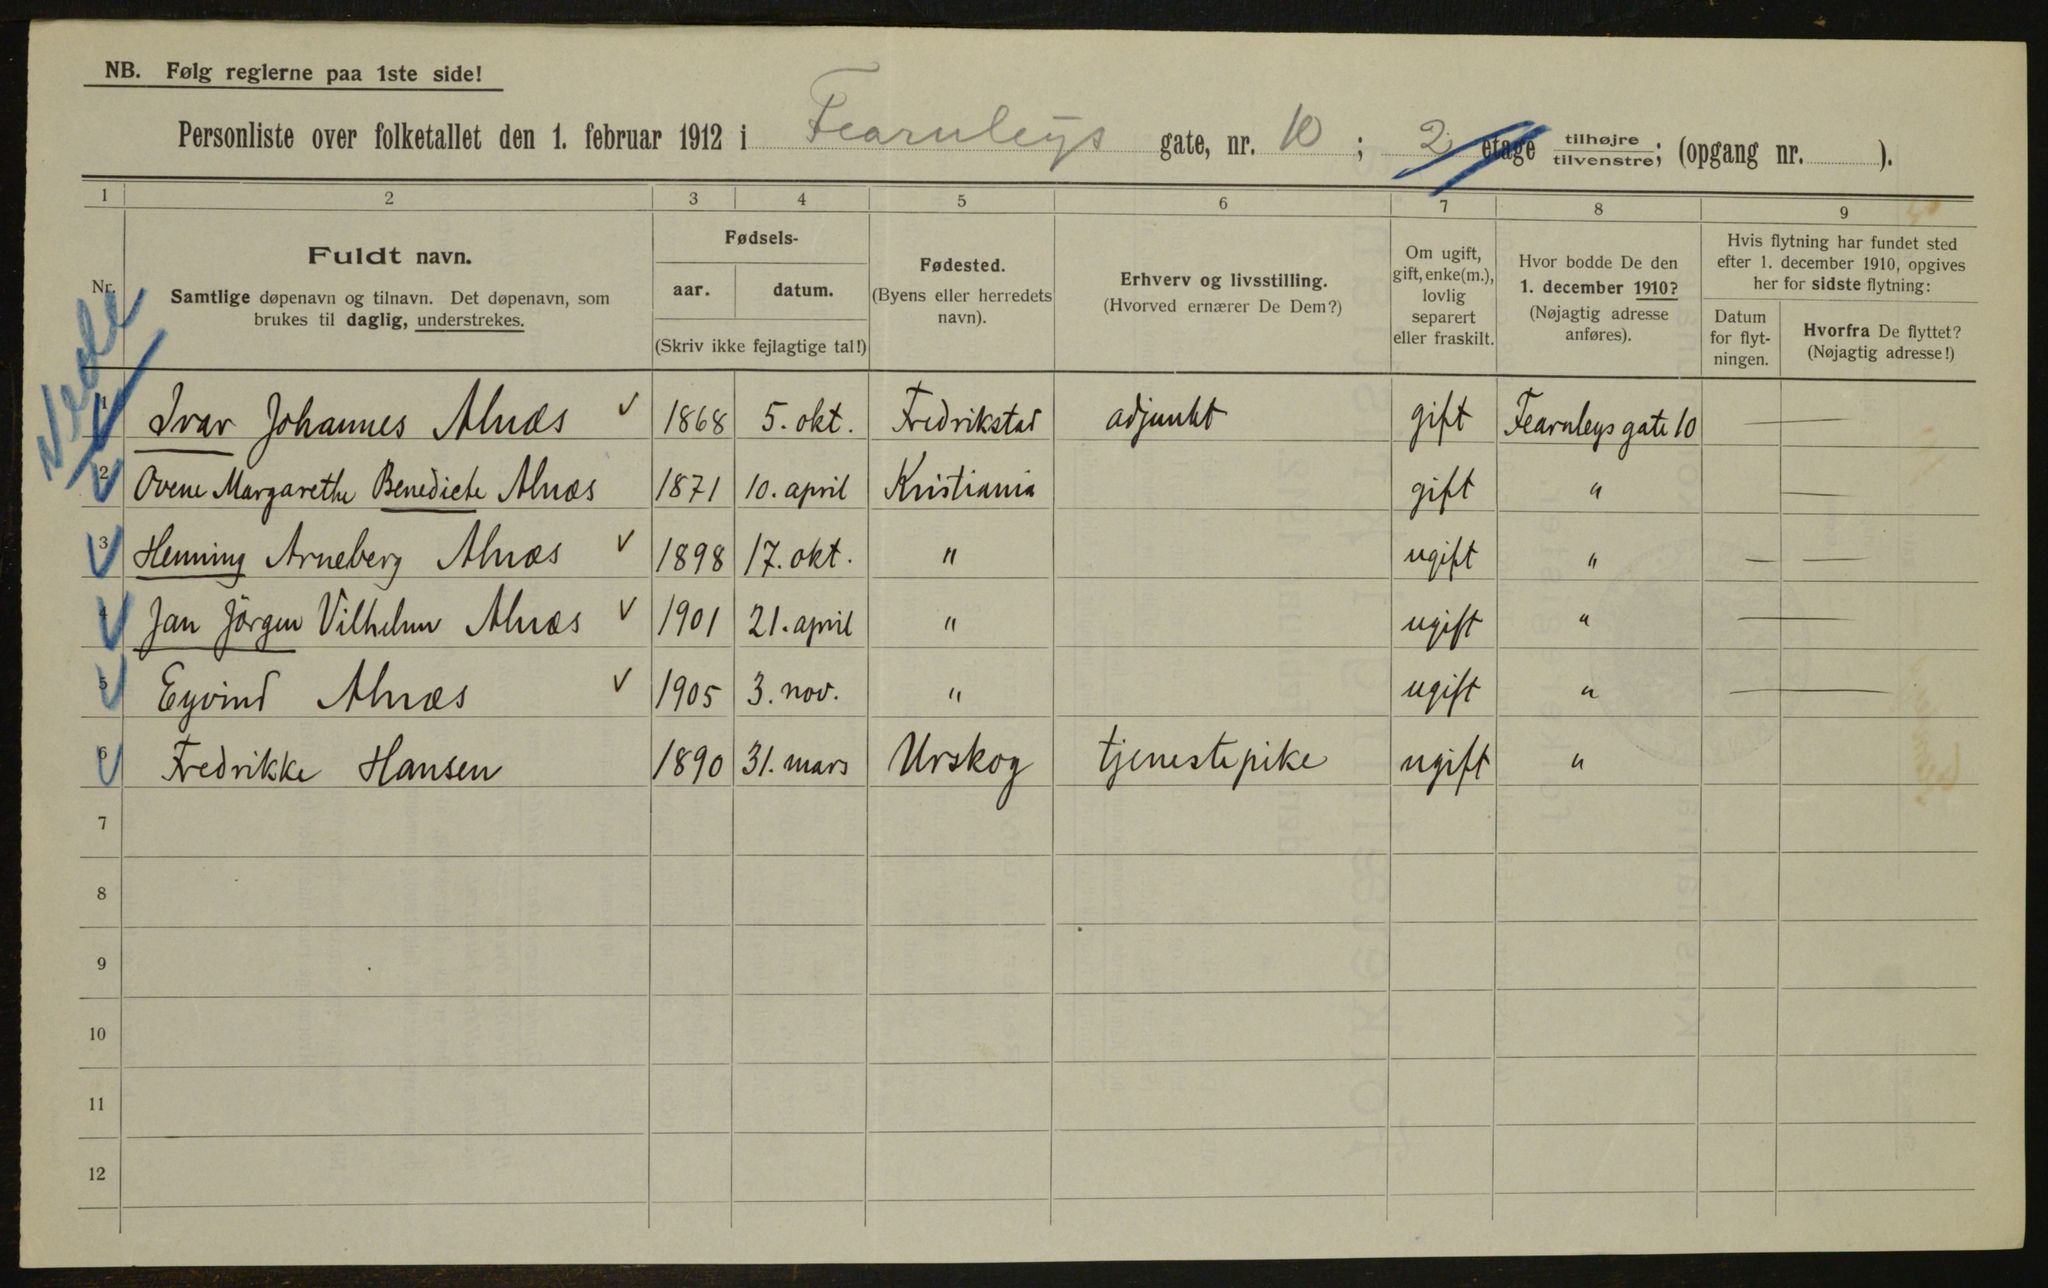 NB. Følg reglerne paa 1ste side!
Personliste over folketallet den 1. februar 1912 i Fearnleys gate, nr. 10 ; 2 etage tilhøjre tilvenstre; (opgang nr. ).
1 2 3 4 5 6 7 8 9
Nr.
Fuldt navn.
Samtlige døpenavn og tilnavn. Det døpenavn, som
brukes til daglig, understrekes.
Fødsels-
aar. datum.
(Skriv ikke fejlagtige tal!)
Fødested.
(Byens eller herredets
navn).
Erhverv og livsstilling.
(Hvorved ernærer De Dem?)
Om ugift,
gift, enke(m.),
lovlig
separert
eller fraskilt.
Hvor bodde De den
1. december 1910?
(Nøjagtig adresse
anføres).
Hvis flytning har fundet sted
efter 1. december 1910, opgives
her for sidste flytning:
Datum
for flyt-
ningen.
Hvorfra De flyttet?
(Nøjagtig adresse!)
1 Ivar Johannes Alnæs ✓ 1868 5. okt. Fredrikstad adjunkt gift Fearnleys gate 10 —
2 Ovene Margarethe Benedicte Alnæs 1871 10. april Kristiania gift " —
3 Henning Arneberg Alnæs ✓ 1898 17. okt. " ugift " — —
4 Jan Jörgen Vilhelm Alnæs ✓ 1901 21. april " ugift " —
5 Eyvind Alnæs ✓ 1905 3. nov. " ugift " —
6 Fredrikke Hansen 1890 31. mars Urskog tjenestepike ugift "
7
8
9
10
11
12